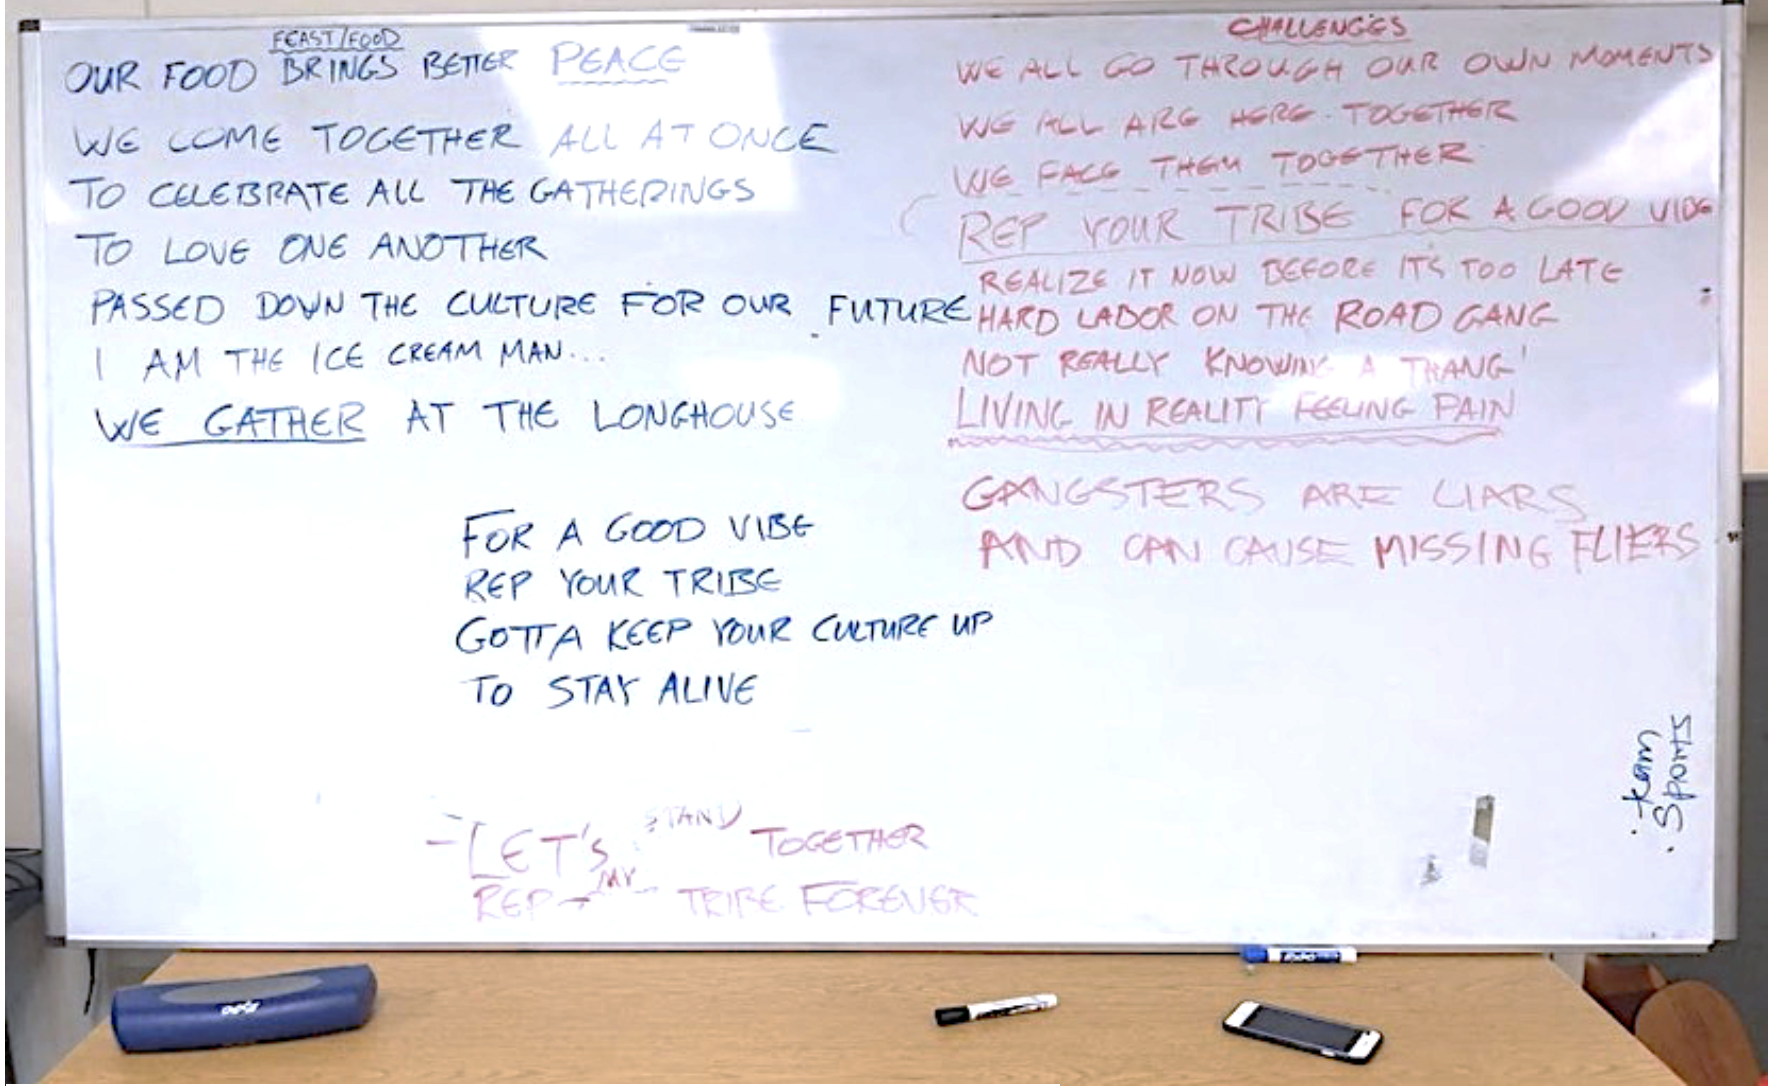 FEAST/FOOD
OUR FOOD BRINGS BETTER PEACE
WE COME TOGETHER ALL AT ONCE
TO CELEBRATE ALL THE GATHERINGS
TO LOVE ONE ANOTHER
PASSED DOWN THE CULTURE FOR OUR FUTURE
I AM THE ICE CREAM MAN...
WE GATHER AT THE LONGHOUSE
FOR A GOOD VIBE
REP YOUR TRIBE
GOTTA KEEP YOUR CULTURE UP
TO STAY ALIVE
- LET'S STAND TOGETHER
REP MY TRIBE FOREVER
CHALLENGES
WE ALL GO THROUGH OUR OWN MOMENTS
WE ALL ARE HERE TOGETHER
WE FACE THEM TOGETHER
REP YOUR TRIBE FOR A GOOD VIBE
REALIZE IT NOW BEFORE IT'S TOO LATE
HARD LABOR ON THE ROAD GANG
NOT REALLY KNOWING A THANG'
LIVING IN REALITY FEELING PAIN
GANGSTERS ARE LIARS
AND CAN CAUSE MISSING FLIERS
· team
· Sports
expo
expo